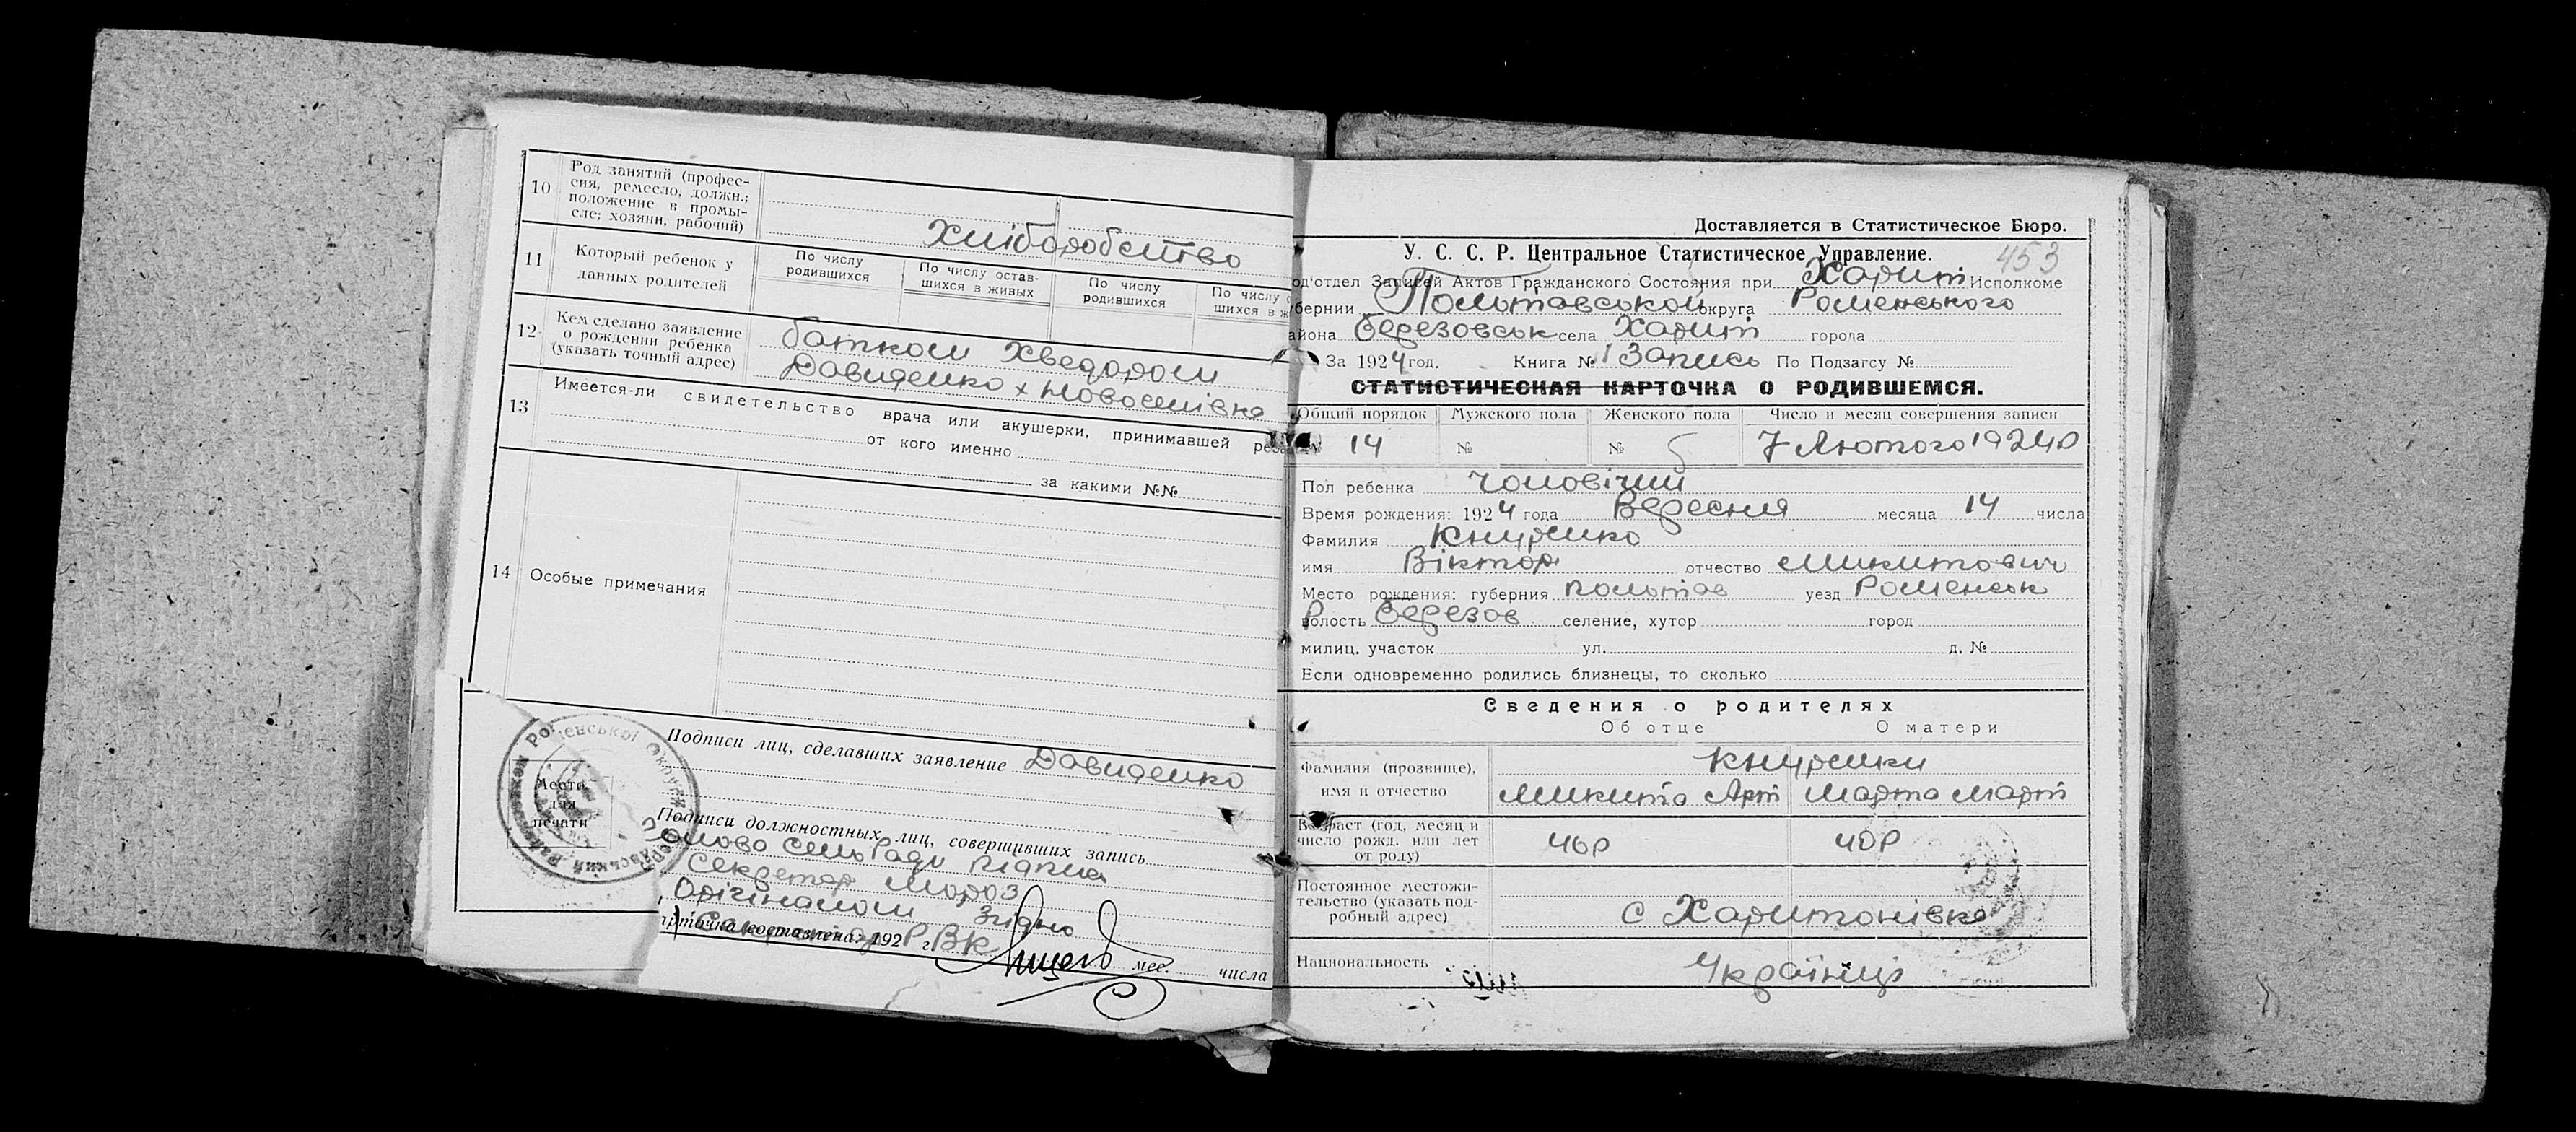 10 Род занятий (профес-
сия, ремесло, должн.;
положение в промы-
сле; хозяин, рабочий)
Хліборобство
11 Который ребенок у
данных родителей
По числу
родившихся
По числу остав-
шихся в живых
По числу
родившихся
По числу о
шихся в ж
12 Кем сделано заявление
о рождении ребенка
(указать точный адрес)
батьком Хведором
Давиденко х Новоселівка
13 Имеется-ли свидетельство врача или акушерки, принимавшей
от кого именно
за какими №№
14 Особые примечания
Подписи лиц, сделавших заявление Давиденко
Место
для
печати
Подписи должностных лиц, совершивших запись
Голова сельРади підпис
Секретар Мороз
Орігіналом Згідно
Секретар РВК
составлена: 192 г. мес. числа
Доставляется в Статистическое Бюро.
У. С. С. Р. Центральное Статистическое Управление. 453
од'отдел Записей Актов Гражданского Состояния при Харит Исполкоме
бернии Польтавськой округа Роменського
айона Березовськ села Харит города
За 1924 год. Книга № 1 Запись По Подзагсу №
СТАТИСТИЧЕСКАЯ КАРТОЧКА О РОДИВШЕМСЯ.
Общий порядок Мужского пола Женского пола Число и месяц совершения записи
14 № № 7 Лютого 1924р
Пол ребенка чоловічий
Время рождения: 1924 года Вересня месяца 14 числа
Фамилия Кнуренко
имя Віктор отчество Микитович
Место рождения: губерния Польтав уезд Роменськ
волость Березов селение, хутор город
милиц. участок ул. д. №
Если одновременно родились близнецы, то сколько
Сведения о родителях
Об отце О матери
Фамилия (прозвище),
имя и отчество
Кнуренки
Микита Арт Марта Март
Возраст (год, месяц и
число рожд. или лет
от роду)
46р 40р
Постоянное местожи-
тельство (указать под-
робный адрес)
с Харитонівка
Национальность Українці